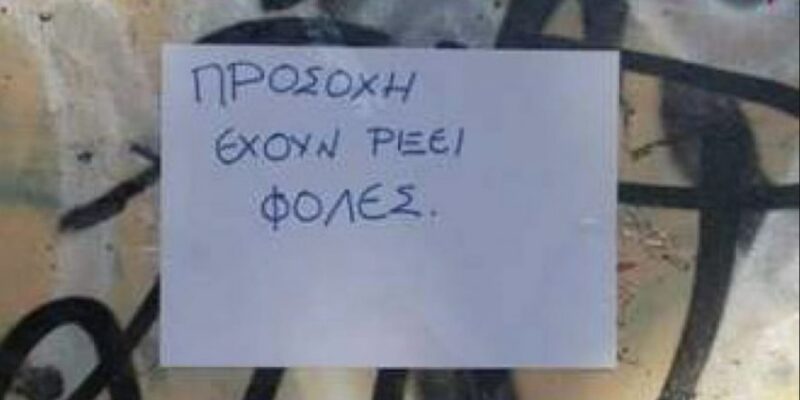 ΠΡΟΣΟΧΗ
ΕΧΟΥΝ ΡΙΞΕΙ
ΦΟΛΕΣ.